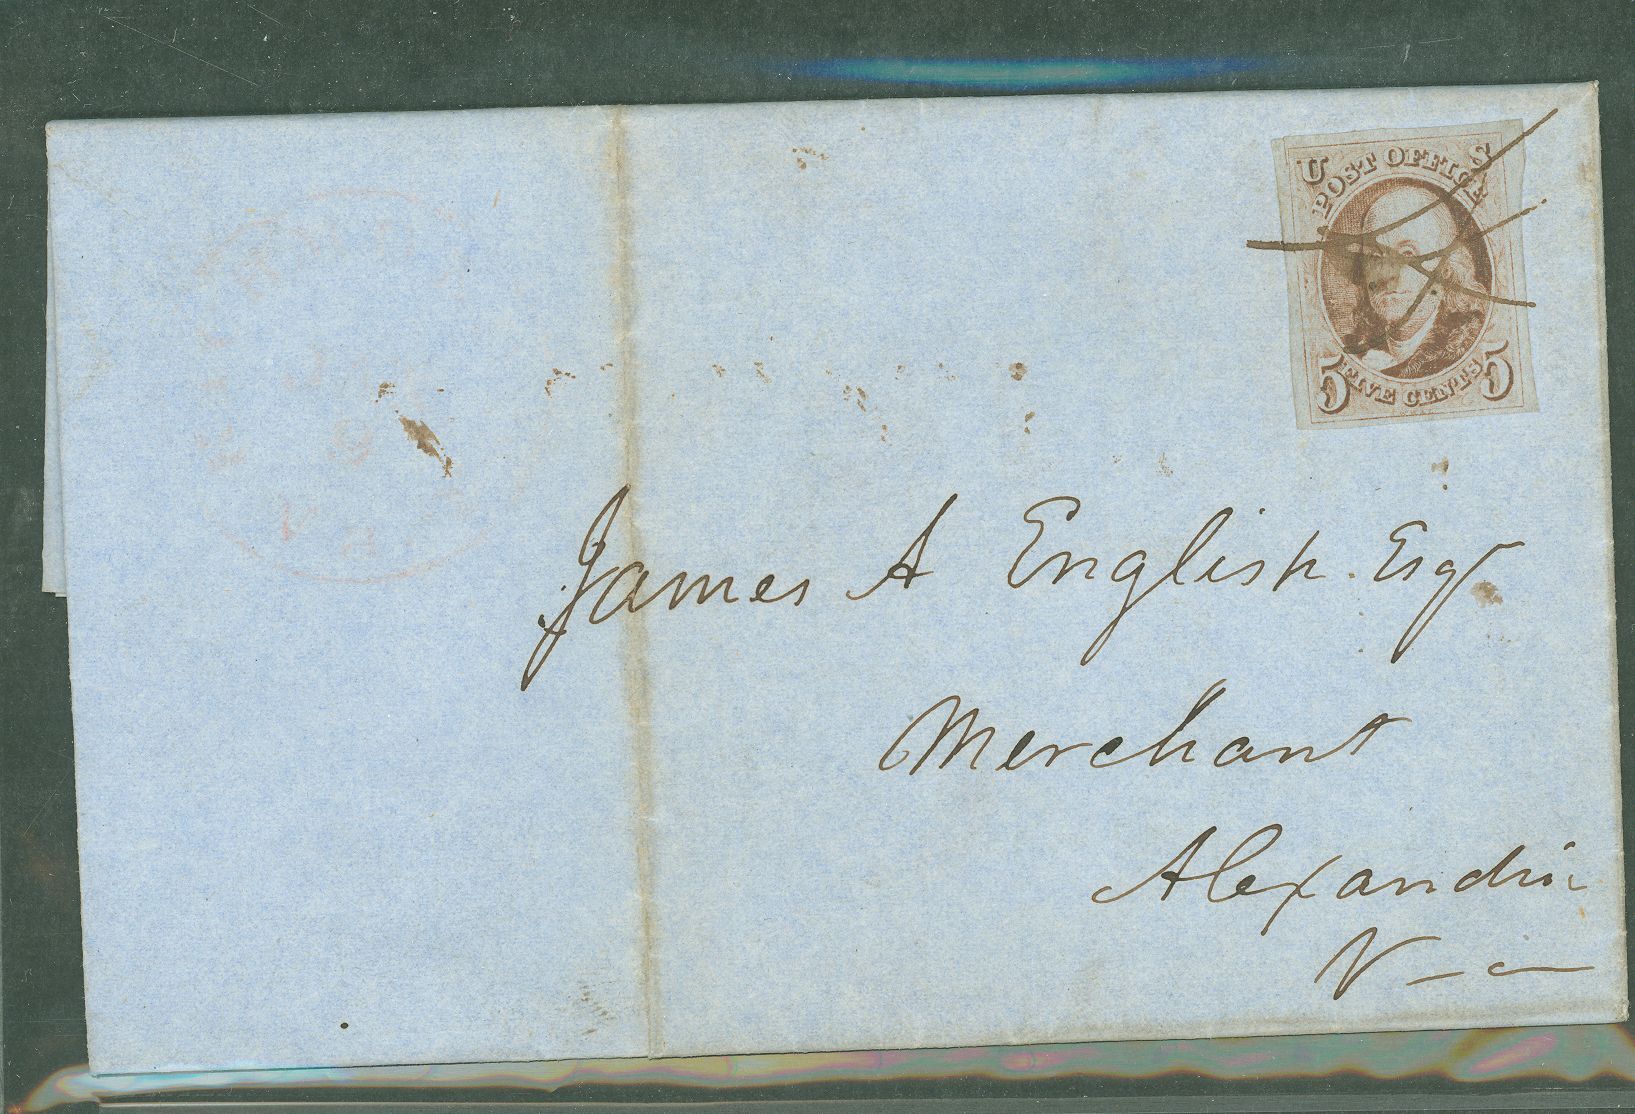 U S
POST OFFICE
5 FIVE CENTS 5
James A English Esqr
Merchant
Alexandria
V—a